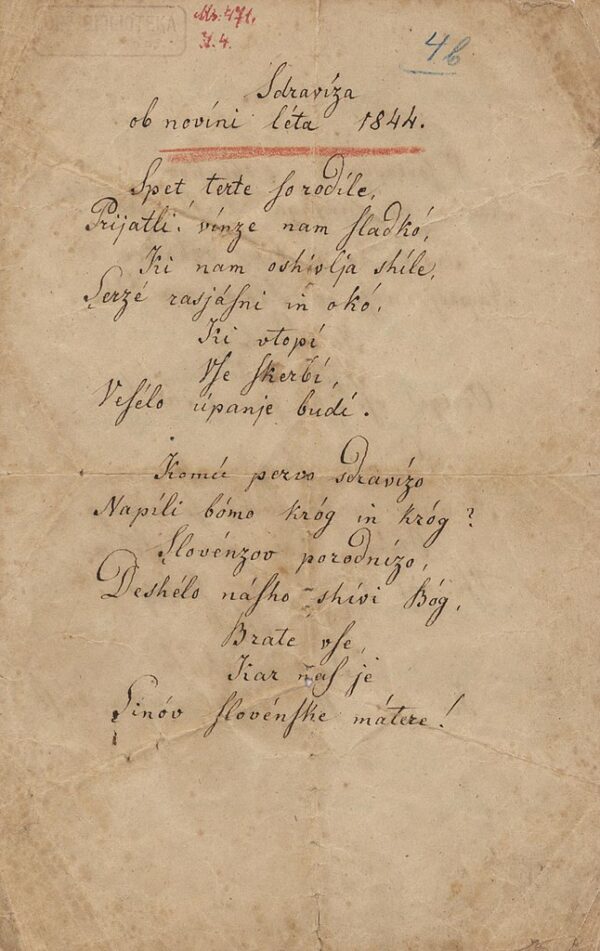 BIBLIOTEKA
Ms. 471.
N. 4.
4b
Sdravíza
ob novíni léta 1844.
Spet terte so rodíle,
Prijatli! vínze nam sladkó,
Ki nam oshivlja shíle,
Serzé rasjásni in okó,
Ki vtopí
Vse skerbí,
Vesélo upanje budí.
Komú pervo sdravízo
Napíli bómo króg in króg?
Slovénzov porodnízo,
Deshélo násho shívi Bóg,
Brate vse,
Kar nas je
Sinóv slovénske mátere!